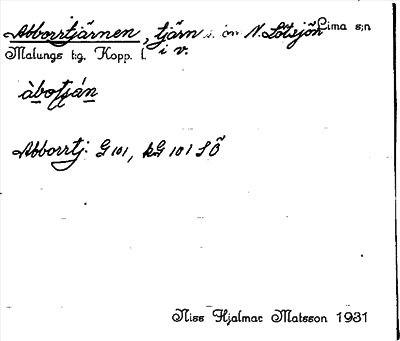 Abborrtjärnen, tjärn i. om N. Lötsjön Lima s:n
Malungs t:g. Kopp. l. i v.
àbotján
Abborrtj. G 101, kG 101 S Ö
Niss Hjalmar Matsson 1931